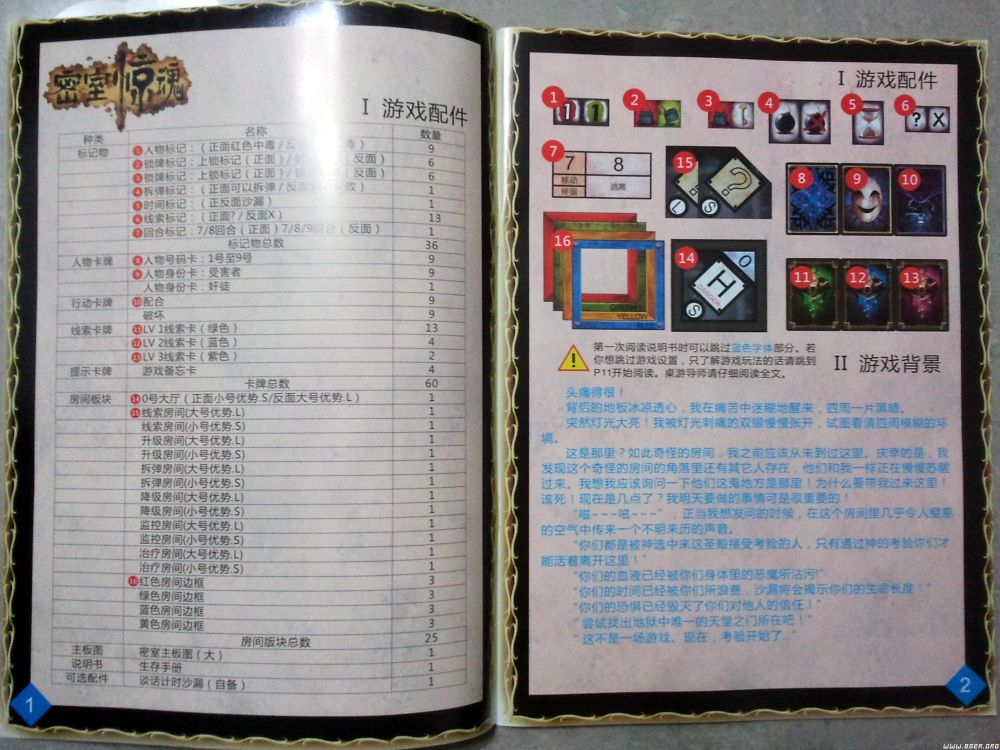 密室惊魂
I 游戏配件
种类 名称 数量
标记物 1 人物标记：（正面红色中毒/反 毒） 9
2 锁牌标记：上锁标记（正面）/ （反面） 6
3 锁牌标记：上锁标记（正面）/ 反面） 6
4 拆弹标记：（正面可以拆弹/反面 ） 1
5 时间标记：（正反面沙漏） 1
6 线索标记：（正面?/反面X） 13
7 回合标记：7/8回合（正面）7/8/9回合（反面） 1
标记物总数 36
人物卡牌 8 人物号码卡：1号至9号 9
9 人物身份卡：受害者 9
人物身份卡：奸徒 1
行动卡牌 10 配合 9
破坏 9
线索卡牌 11 LV 1线索卡（绿色） 13
12 LV 2线索卡（蓝色） 4
13 LV 3线索卡（紫色） 2
提示卡牌 游戏备忘卡 4
卡牌总数 60
房间板块 14 0号大厅（正面小号优势.S/反面大号优势.L） 1
15 线索房间(大号优势.L) 1
线索房间(小号优势.S) 1
升级房间(大号优势.L) 1
升级房间(小号优势.S) 1
拆弹房间(大号优势.L) 1
拆弹房间(小号优势.S) 1
降级房间(大号优势.L) 1
降级房间(小号优势.S) 1
监控房间(大号优势.L) 1
监控房间(小号优势.S) 1
治疗房间(大号优势.L) 1
治疗房间(小号优势.S) 1
16 红色房间边框 3
绿色房间边框 3
蓝色房间边框 3
黄色房间边框 3
房间版块总数 25
主板图 密室主板图（大） 1
说明书 生存手册 1
可选配件 谈话计时沙漏（自备） 1
1
I 游戏配件
1 1 1 2 3 4 5 6 ? X
7 7 8
移动
停留 逃离
15 ? L S
8 9 10
16 RED GREEN YELLOW BLUE
14 H DANGER O S
11 12 13
第一次阅读说明书时可以跳过蓝色字体部分。若
你想跳过游戏设置，只了解游戏玩法的话请跳到
P11开始阅读。桌游导师请仔细阅读全文。
II 游戏背景
头痛得很！
背后的地板冰凉透心，我在痛苦中迷糊地醒来，四周一片黑暗。
突然灯光大亮！我被灯光刺痛的双眼慢慢张开，试图看清四周模糊的环
境。
这是那里？如此奇怪的房间，我之前应该从未到过这里。庆幸的是，我
发现这个奇怪的房间的角落里还有其它人存在，他们和我一样正在慢慢苏醒
过来。我想我应该询问一下他们这鬼地方是那里！为什么要带我过来这里！
该死！现在是几点了？我明天要做的事情可是很重要的！
“嗞~~~嗞~~~”，正当我想发问的时候，在这个房间里几乎令人窒息
的空气中传来一个不明来历的声音。
“你们都是被神选中来这圣殿接受考验的人，只有通过神的考验你们才
能活着离开这里！”
“你们的血液已经被你们身体里的恶魔所沾污!”
“你们的时间已经被你们所浪费，沙漏将会揭示你们的生命长度！”
“你们的恐惧已经毁灭了你们对他人的信任！”
“尝试找出地狱中唯一的天堂之门所在吧！”
“这不是一场游戏。现在，考验开始了...”
2
WWW.BGER.ORG